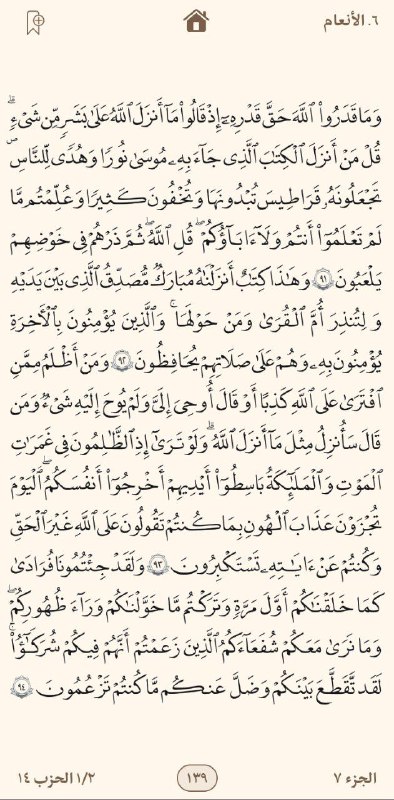 ٦. الأنعام
وَمَا قَدَرُوا۟ ٱللَّهَ حَقَّ قَدْرِهِۦٓ إِذْ قَالُوا۟ مَآ أَنزَلَ ٱللَّهُ عَلَىٰ بَشَرٍ مِّن شَىْءٍ ۗ
قُلْ مَنْ أَنزَلَ ٱلْكِتَٰبَ ٱلَّذِى جَآءَ بِهِۦ مُوسَىٰ نُورًا وَهُدًى لِّلنَّاسِ ۖ
تَجْعَلُونَهُۥ قَرَاطِيسَ تُبْدُونَهَا وَتُخْفُونَ كَثِيرًا ۖ وَعُلِّمْتُم مَّا
لَمْ تَعْلَمُوٓا۟ أَنتُمْ وَلَآ ءَابَآؤُكُمْ ۖ قُلِ ٱللَّهُ ۖ ثُمَّ ذَرْهُمْ فِى خَوْضِهِمْ
يَلْعَبُونَ ٩١ وَهَٰذَا كِتَٰبٌ أَنزَلْنَٰهُ مُبَارَكٌ مُّصَدِّقُ ٱلَّذِى بَيْنَ يَدَيْهِ
وَلِتُنذِرَ أُمَّ ٱلْقُرَىٰ وَمَنْ حَوْلَهَا ۚ وَٱلَّذِينَ يُؤْمِنُونَ بِٱلْءَاخِرَةِ
يُؤْمِنُونَ بِهِۦ ۖ وَهُمْ عَلَىٰ صَلَاتِهِمْ يُحَافِظُونَ ٩٢ وَمَنْ أَظْلَمُ مِمَّنِ
ٱفْتَرَىٰ عَلَى ٱللَّهِ كَذِبًا أَوْ قَالَ أُوحِىَ إِلَىَّ وَلَمْ يُوحَ إِلَيْهِ شَىْءٌ وَمَن
قَالَ سَأُنزِلُ مِثْلَ مَآ أَنزَلَ ٱللَّهُ ۗ وَلَوْ تَرَىٰٓ إِذِ ٱلظَّٰلِمُونَ فِى غَمَرَٰتِ
ٱلْمَوْتِ وَٱلْمَلَٰٓئِكَةُ بَاسِطُوٓا۟ أَيْدِيهِمْ أَخْرِجُوٓا۟ أَنفُسَكُمُ ۖ ٱلْيَوْمَ
تُجْزَوْنَ عَذَابَ ٱلْهُونِ بِمَا كُنتُمْ تَقُولُونَ عَلَى ٱللَّهِ غَيْرَ ٱلْحَقِّ
وَكُنتُمْ عَنْ ءَايَٰتِهِۦ تَسْتَكْبِرُونَ ٩٣ وَلَقَدْ جِئْتُمُونَا فُرَٰدَىٰ
كَمَا خَلَقْنَٰكُمْ أَوَّلَ مَرَّةٍ وَتَرَكْتُم مَّا خَوَّلْنَٰكُمْ وَرَآءَ ظُهُورِكُمْ ۖ
وَمَا نَرَىٰ مَعَكُمْ شُفَعَآءَكُمُ ٱلَّذِينَ زَعَمْتُمْ أَنَّهُمْ فِيكُمْ شُرَكَٰٓؤُا۟ ۚ
لَقَد تَّقَطَّعَ بَيْنَكُمْ وَضَلَّ عَنكُم مَّا كُنتُمْ تَزْعُمُونَ ٩٤
الجزء ٧
١٣٩
١/٢ الحزب ١٤